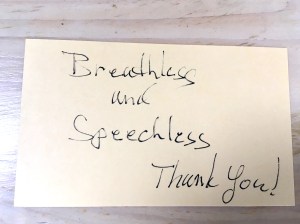 Breathless
and
Speechless
Thank You!